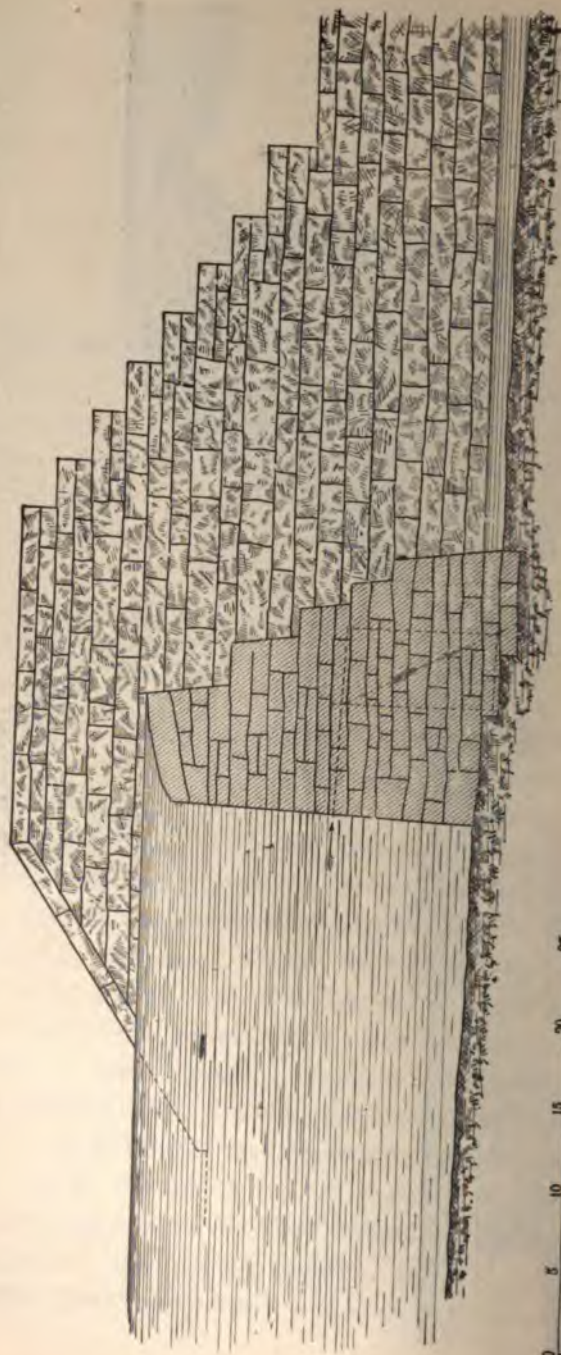 0 5 10 15 20 25